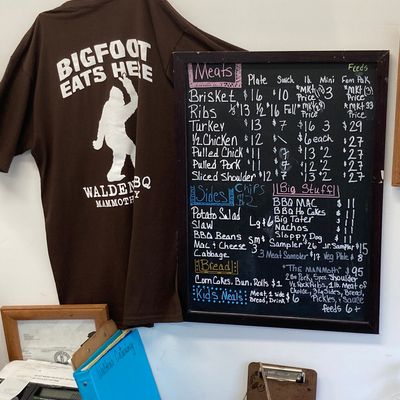 BIGFOOT
EATS HERE
WALDEN BBQ
MAMMOTH
Feeds
Meats Plate Swich lb Mini Fam Pak
Brisket $16 $10 *Mkt Price 3 *Mkt Price
Ribs 1/3 13 1/2 16 Full *Mkt Price *Mkt Price
Turkey $13 $7 16 3 $29
1/2 Chicken $12 6 each $27
Pulled Chick $11 7 13 2 $27
Pulled Pork $11 7 13 2 $27
Sliced Shoulder $12 $7 13 2 $27
Sides Chips $2
Big Stuff
Potato Salad
Slaw
BBQ Beans
Mac + Cheese
Cabbage
Lg $6
Sm $3
BBQ MAC $11
BBQ Ho Cakes $11
Big Tater $11
Nachos $11
Sloppy Dog $11
Sampler $26 Jr. Sampler $15
3 Meat Sampler $17 Veg Plate $8
Bread
Corn Cakes, Bun, Rolls $1
Kids Meals Meat, 1 side Bread, Drink $6
"The Mammoth" $95
1/2 Rack Ribs, 1 lb. Meat of
Choice, 3 Lg Sides, Bread,
Pickles, + Sauce
feeds 6+
Walden Catering